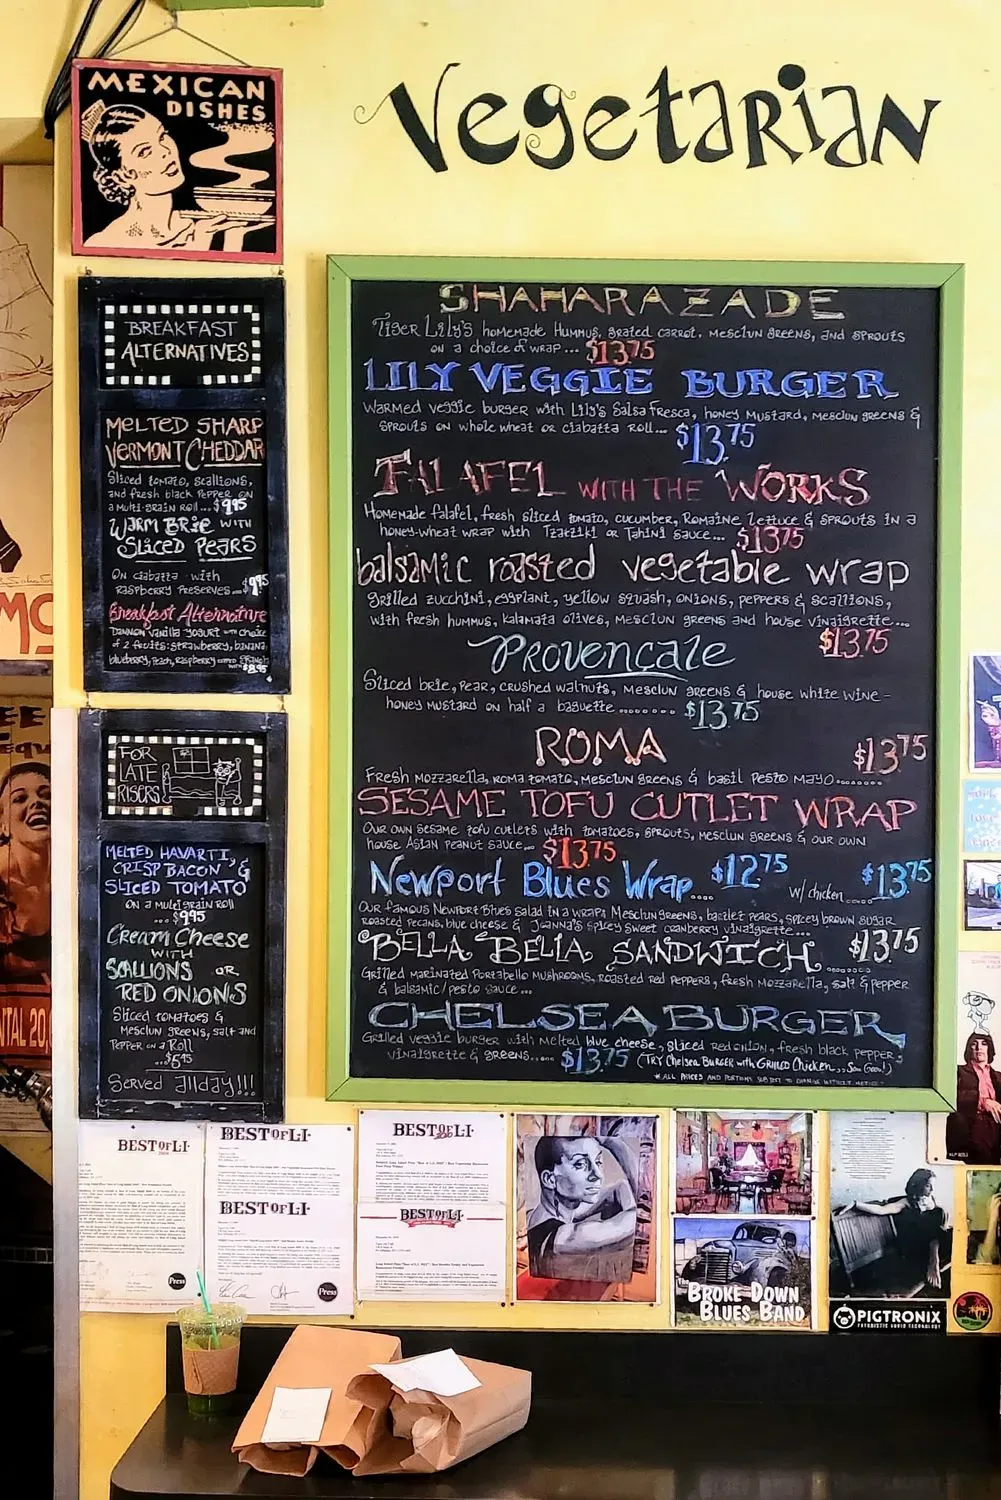 MEXICAN
DISHES
Vegetarian
BREAKFAST
ALTERNATIVES
MELTED SHARP
VERMONT CHEDDAR
Sliced tomato, scallions,
and fresh black pepper on
a multi-grain roll... $9.95
WARM BRIE WITH
SLICED PEARS
On ciabatta with
raspberry preserves... $9.95
Breakfast Alternative
Dannon vanilla yogurt with choice
of 2 fruits: strawberry, banana
blueberry, peach, raspberry
$8.95
FOR
LATE
RISERS
MELTED HAVARTI,
CRISP BACON &
SLICED TOMATO
ON a Multi grain Roll
... $9.95
Cream Cheese
WITH
SCALLIONS OR
RED ONIONS
Sliced tomatoes &
Mesclun greens, salt and
Pepper on a Roll
...$5.95
Served allday!!!
SHAHARAZADE
Tiger Lily's homemade Hummus, grated carrot, mesclun greens, and sprouts
on a choice of wrap... $13.75
LILY VEGGIE BURGER
Warmed veggie burger with Lily's Salsa Fresca, honey mustard, mesclun greens &
sprouts on whole wheat or ciabatta roll... $13.75
FALAFEL WITH THE WORKS
Homemade falafel, fresh sliced tomato, cucumber, Romaine lettuce & sprouts in a
honey-wheat wrap with Tzatziki or Tahini sauce... $13.75
balsamic roasted vegetable wrap
grilled zucchini, eggplant, yellow squash, onions, peppers & scallions,
with fresh hummus, kalamata olives, mesclun greens and house vinaigrette...
$13.75
Provencale
Sliced brie, pear, crushed walnuts, mesclun greens & house white wine-
honey mustard on half a baguette ........ $13.75
ROMA $13.75
Fresh mozzarella, roma tomato, mesclun greens & basil pesto mayo........
SESAME TOFU CUTLET WRAP
Our own sesame tofu cutlets with tomatoes, sprouts, mesclun greens & our own
house Asian peanut sauce... $13.75
Newport Blues Wrap... $12.75 w/ chicken..... $13.75
Our famous Newport Blues salad in a wrap: Mesclun greens, bartlet pears, spicey brown sugar
roasted pecans, blue cheese & Joanna's spicey sweet cranberry vinaigrette....
BELLA BELLA SANDWICH..... $13.75
Grilled marinated Portabello mushrooms, roasted red peppers, fresh mozzarella, salt & pepper
& balsamic/pesto sauce...
CHELSEA BURGER
Grilled veggie burger with melted blue cheese, sliced red onion, fresh black pepper,
vinaigrette & greens..... $13.75 (Try Chelsea Burger with Grilled Chicken... Soo Good!)
* ALL PRICES AND PORTIONS SUBJECT TO CHANGE WITHOUT NOTICE
BEST OF L.I.
BEST OF L.I.
BEST OF L.I.
BEST OF L.I.
BEST OF L.I.
Press
Press
BROKE DOWN
BLUES BAND
PIGTRONIX